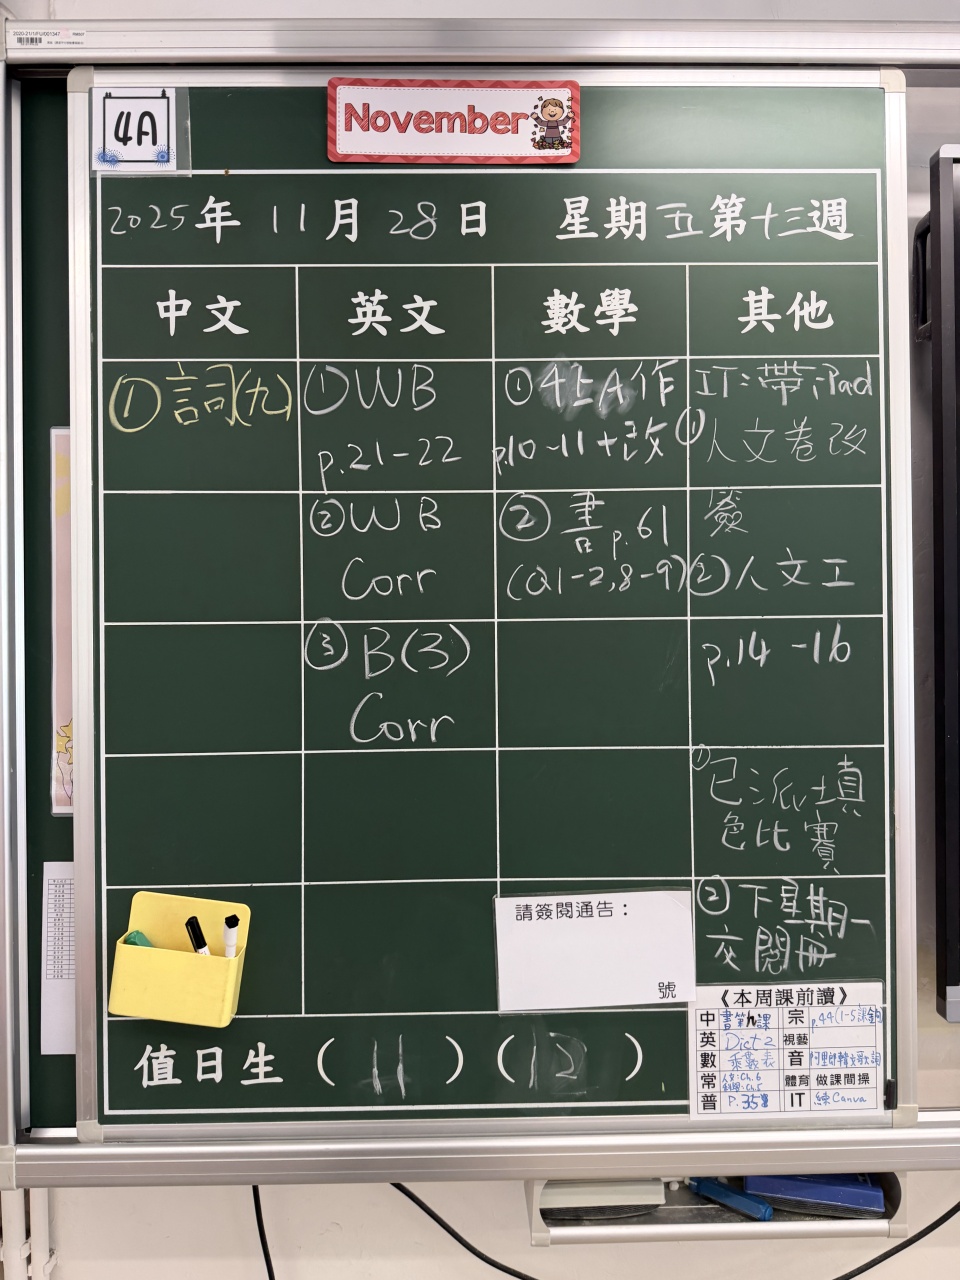 2020-21/1/FU/001347
4A
November
2025年 11月 28日 星期五第十三週
中文 英文 數學 其他
①詞(九)
①WB
p.21-22
②WB
Corr
③B(3)
Corr
①4上A作
p.10-11+改
②書p.61
(Q1-2,8-9)
IT:帶iPad
①人文卷改
簽
②人文工
p.14-16
①已派填
色比賽
②下星期一
交閱冊
請簽閱通告:
號
值日生 (11) (12)
《本周課前讀》
中 書第九課 宗 p.44(1-5課
英 Dict 2 視藝
數 乘數表 音 阿里郎
常 人文:Ch.6
科學:Ch.5 體育 做課間操
普 P.35 IT 練Canva